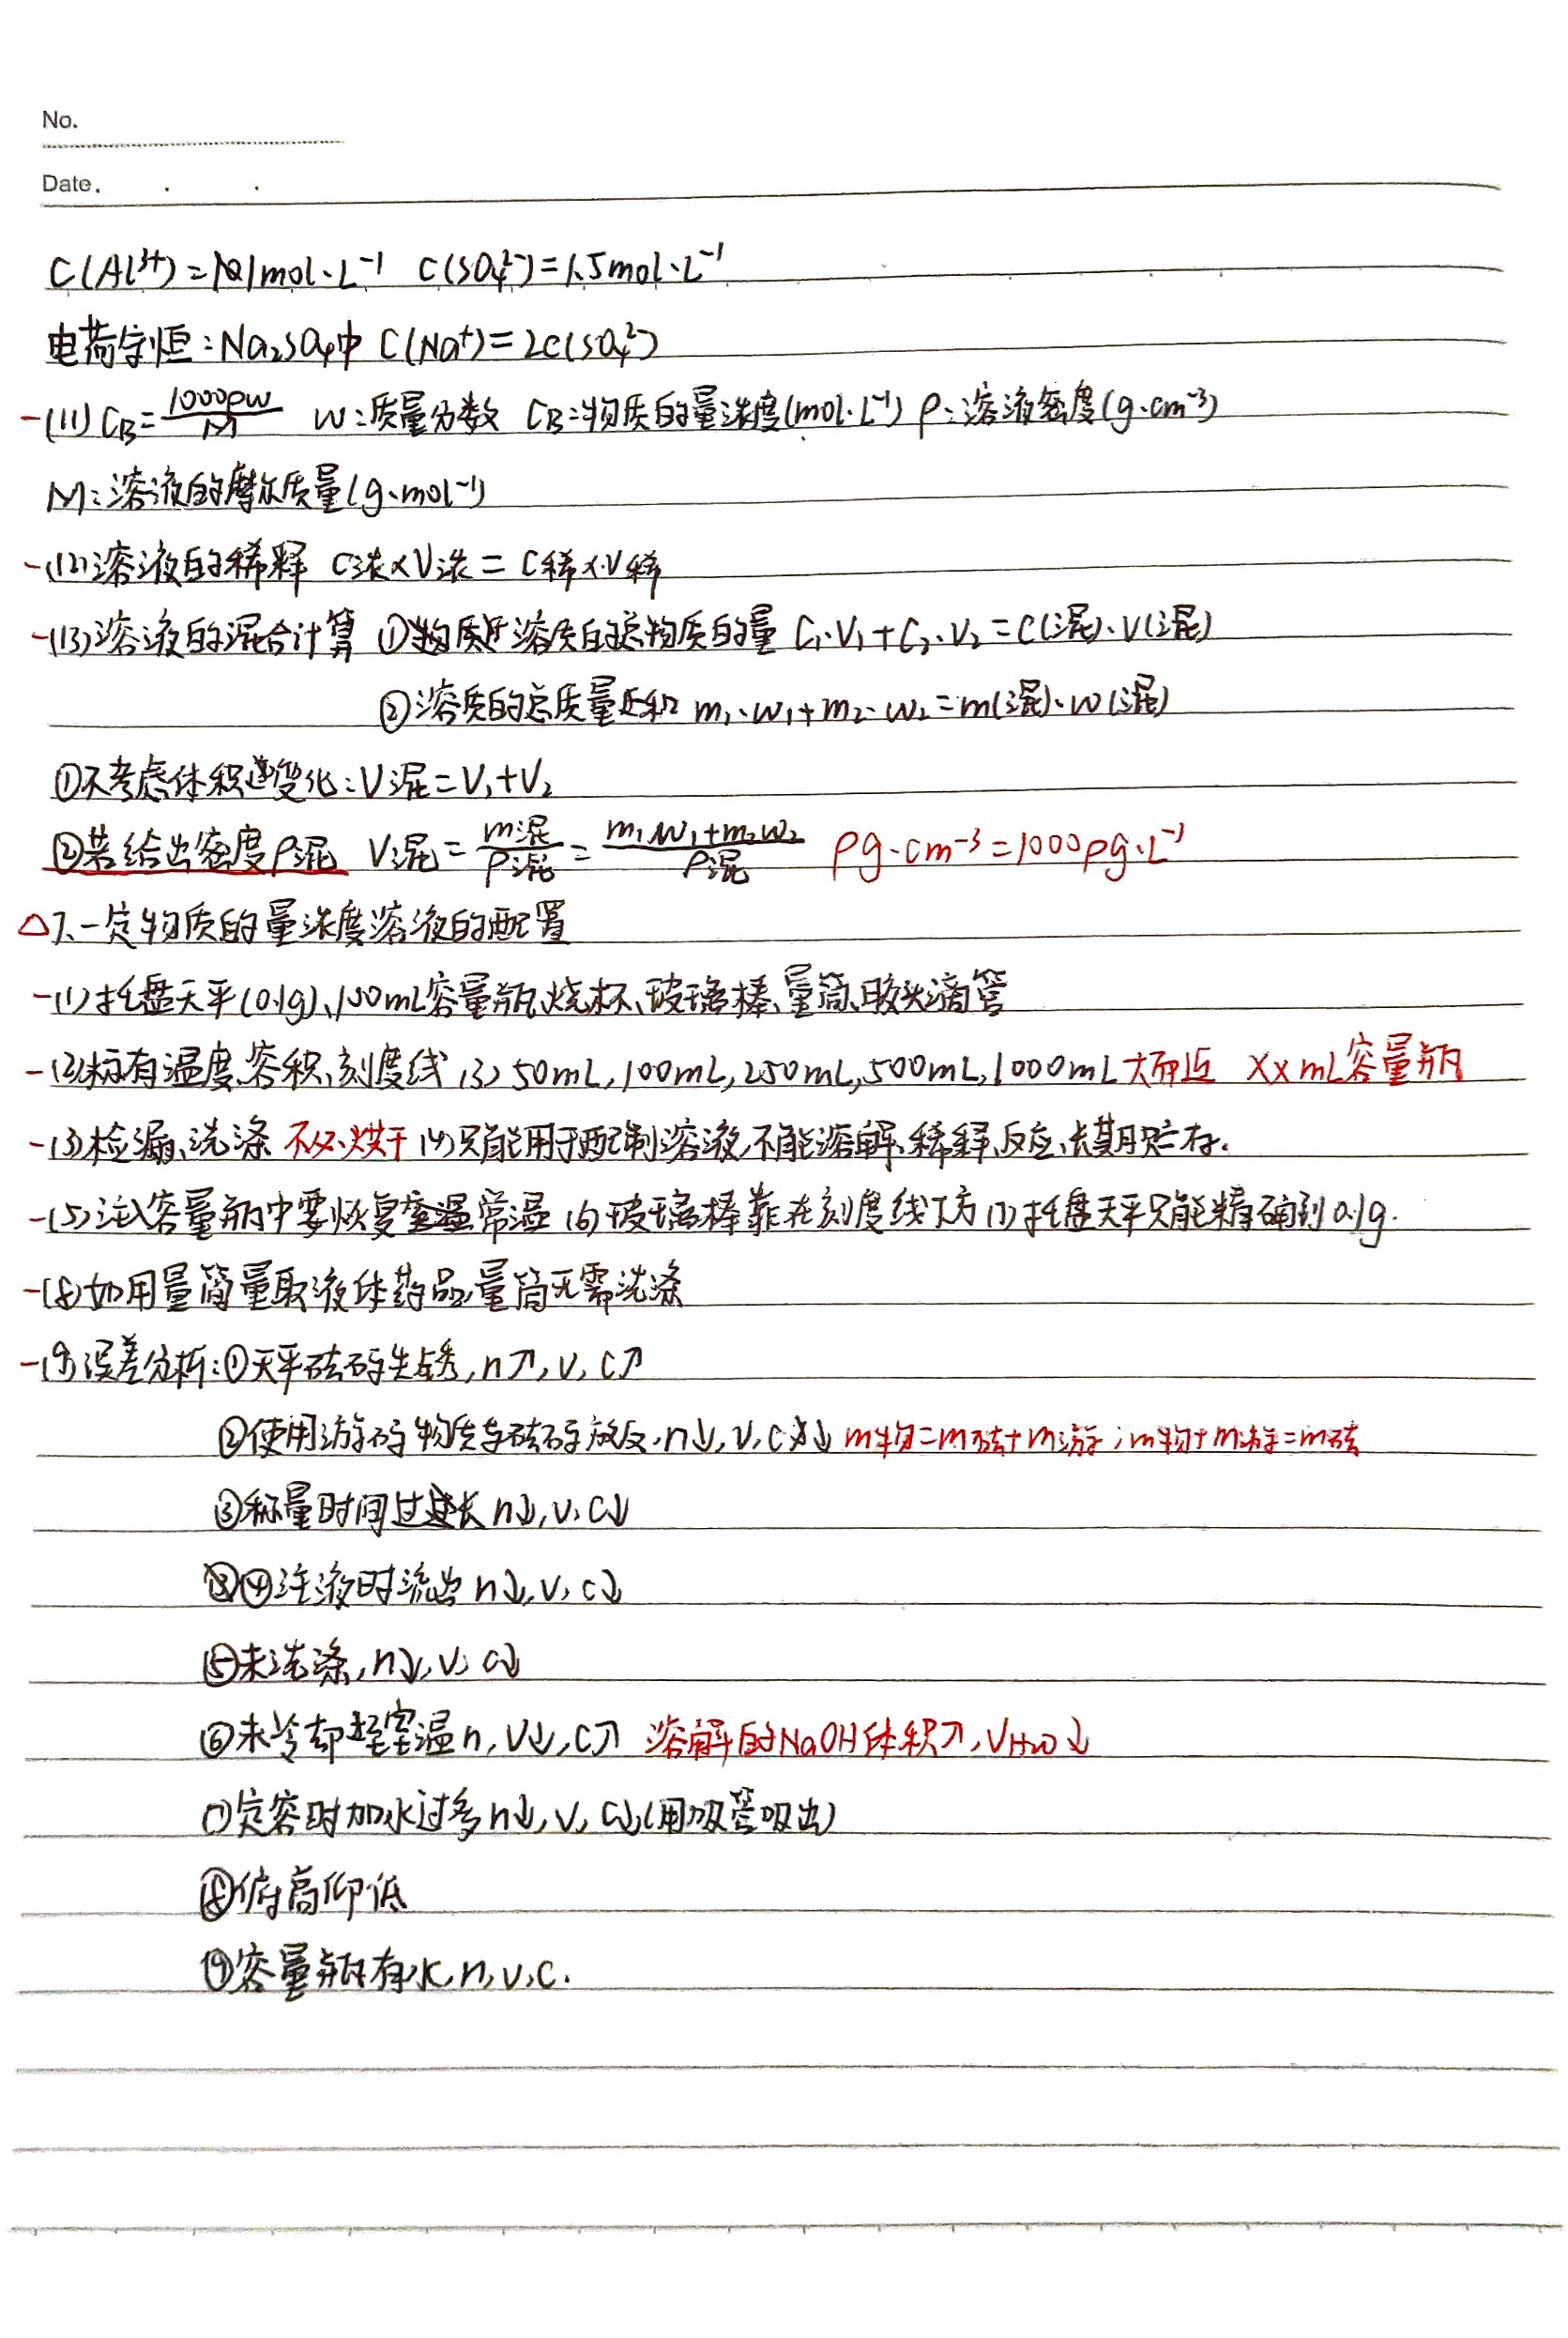 No.
Date.
C(Al³⁺)=1mol·L⁻¹ C(SO₄²⁻)=1.5mol·L⁻¹
电荷守恒:Na₂SO₄中 C(Na⁺)=2C(SO₄²⁻)
-(11) CB=1000ρw/M w:质量分数 CB:物质的量浓度(mol·L⁻¹) ρ:溶液密度(g·cm⁻³)
M:溶液的摩尔质量(g·mol⁻¹)
-(12)溶液的稀释 C浓×V浓=C稀×V稀
-(13)溶液的混合计算 ①溶质的总物质的量 C₁·V₁+C₂·V₂=C(混)·V(混)
②溶质的总质量 m₁·w₁+m₂·w₂=m(混)·w(混)
①不考虑体积变化:V混=V₁+V₂
②若给出密度ρ混 V混=m混/ρ混=m₁w₁+m₂w₂/ρ混 ρg·cm⁻³=1000ρg·L⁻¹
△7.一定物质的量浓度溶液的配置
-(1)托盘天平(0.1g)、100mL容量瓶、烧杯、玻璃棒、量筒、胶头滴管
-(2)标有温度、容积、刻度线 (3) 50mL,100mL,250mL,500mL,1000mL 大而近 XXmL容量瓶
-(3)检漏、洗涤 不必烘干 (4)只能用于配制溶液,不能溶解、稀释、反应、长期贮存.
-(5)注入容量瓶中要恢复常温 (6)玻璃棒靠在刻度线下方 (7)托盘天平只能精确到0.1g.
-(8)如用量筒量取液体药品,量筒无需洗涤
-(9)误差分析:①天平砝码生锈,n↗,v,c↗
②使用游码物质与砝码放反,n↓,v,c↓ m物=m砝+m游;m物+m游=m砝
③称量时间过长n↓,v,c↓
④注液时流出n↓,v,c↓
⑤未洗涤,n↓,v,c↓
⑥未冷却至室温n,V↓,c↗ 溶解的NaOH体积↗,VH₂O↓
⑦定容时加水过多n↓,v,c↓(用吸管吸出)
⑧俯高仰低
⑨容量瓶有水,n,v,c.